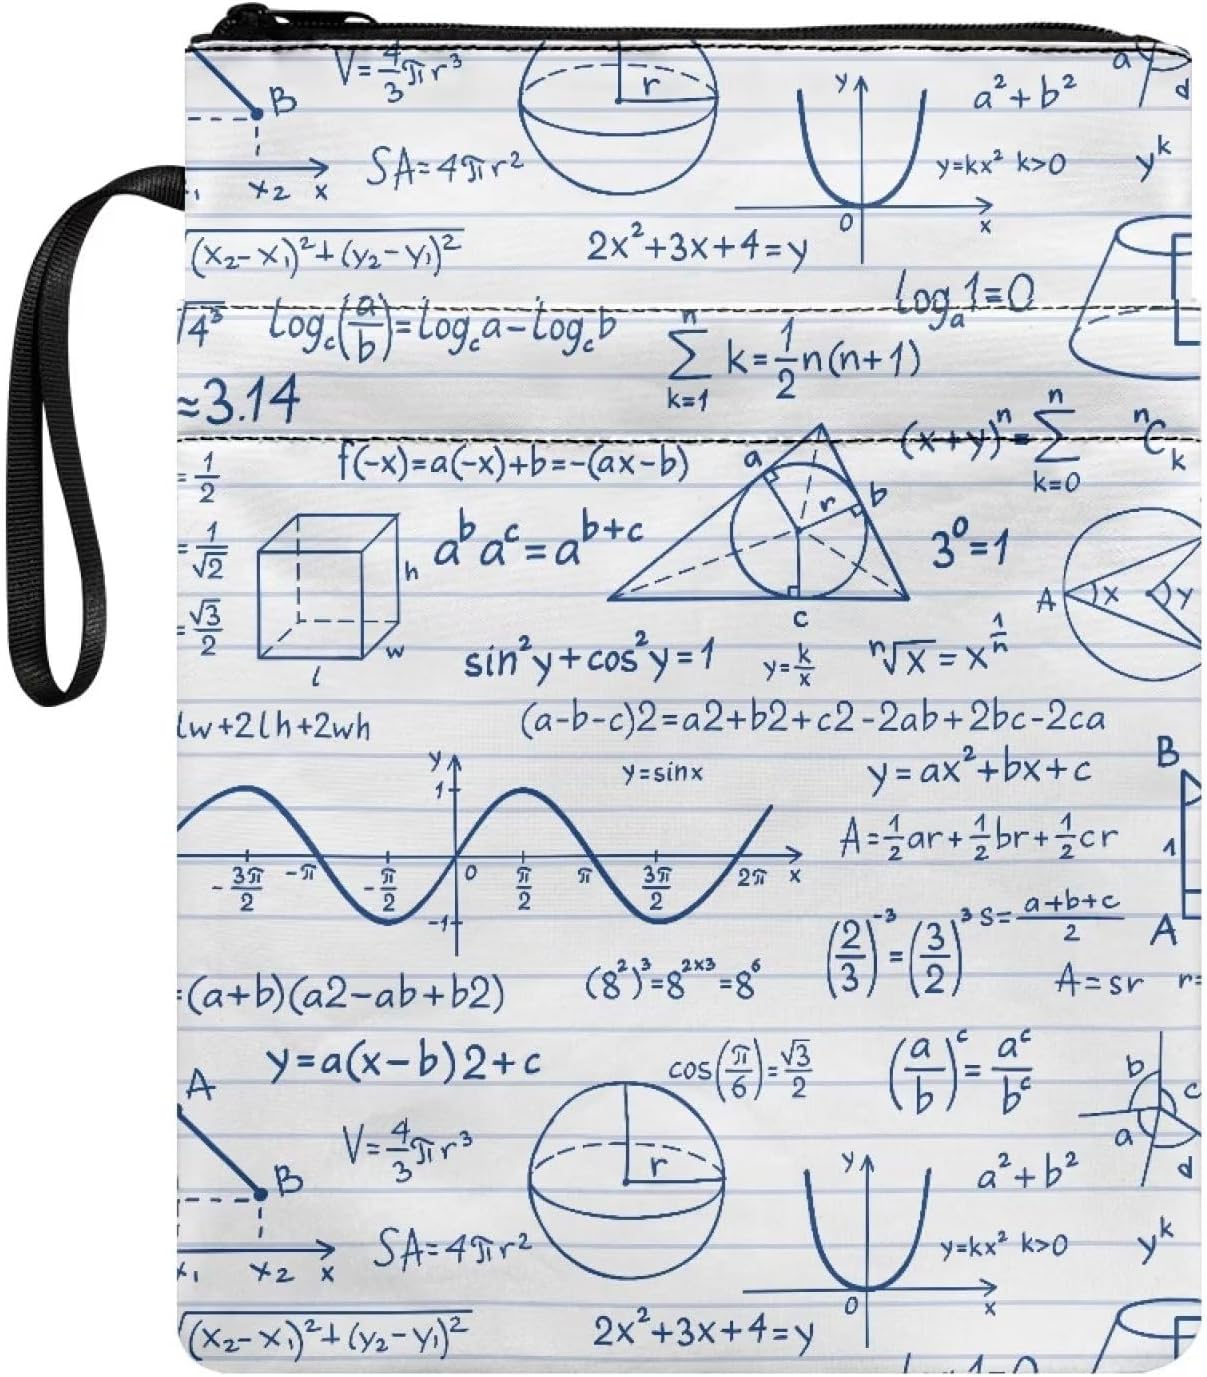 V=4/3πr³
B
r
y
a²+b²
a
d
SA=4πr²
y=kx² k>0
yᵏ
x₂ x
0
x
√(x₂-x₁)²+(y₂-y₁)²
2x²+3x+4=y
logₐ1=0
√4³
log꜀(a/b)=log꜀a-log꜀b
n
∑ k=1/2n(n+1)
k=1
≈3.14
(x+y)ⁿ=∑
n
k=0
ⁿCₖ
=1/2
f(-x)=a(-x)+b=-(ax-b)
a
r
b
c
=1/√2
h
w
l
aᵇaᶜ=aᵇ⁺ᶜ
3⁰=1
A
x
y
=√3/2
sin²y+cos²y=1
y=k/x
ⁿ√x=x^(1/n)
lw+2lh+2wh
(a-b-c)2=a2+b2+c2-2ab+2bc-2ca
y
1
y=sinx
y=ax²+bx+c
B
A=1/2ar+1/2br+1/2cr
1
-3π/2 -π -π/2 0 π/2 π 3π/2 2π x
-1
(2/3)⁻³=(3/2)³
s=a+b+c/2
A
=(a+b)(a2-ab+b2)
(8²)³=8²ˣ³=8⁶
A=sr r=
y=a(x-b)2+c
cos(π/6)=√3/2
(a/b)ᶜ=aᶜ/bᶜ
A
b
c
a
d
V=4/3πr³
B
r
y
a²+b²
SA=4πr²
y=kx² k>0
yᵏ
x₁ x₂ x
0
x
√(x₂-x₁)²+(y₂-y₁)²
2x²+3x+4=y